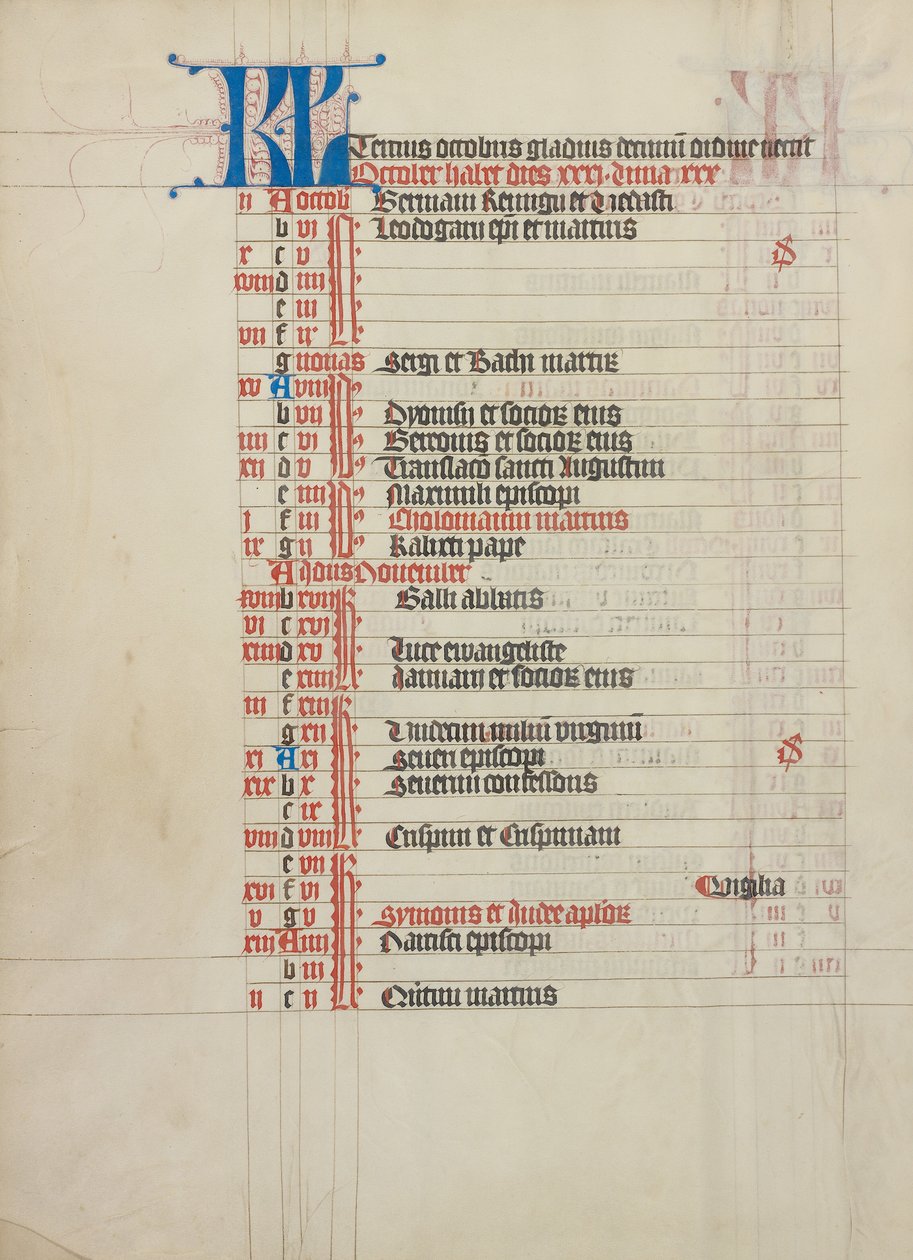 KL Tercius octobris gladius decimū ordine nectit
October habet dies xxxi. Luna xxx
ii A octob Germani Remigii et Vedasti
b vi Leodogarii epī et martiris
x c v
xviii d iiii
e iii
vii f ii
g nonas Sergi et Bachi martirꝝ
xv A viii
b vii Dyonisii et socioꝝ eius
iiii c vi Gereonis et socioꝝ eius
xii d v Translacō sancti Augustini
e iiii Maximili episcopi
i f iii Cholomanni martiris
ix g ii Kalixti pape
A Idus Nouember
xvii b xvii Galli abbatis
vi c xvi
xiiii d xv Luce ewangeliste
e xiiii Ianuarii et socioꝝ eius
iii f xiii
g xii Vndecim miliū virginū
xi A xi Seueri episcopi
xix b x Seuerini confessoris
c ix
viii d viii Crispini et Crispiniani
e vii
xvi f vi Vigilia
v g v Symonis et Iude aplōꝝ
xiii A iiii Narcisci episcopi
b iii
ii c ii Qūitini martiris